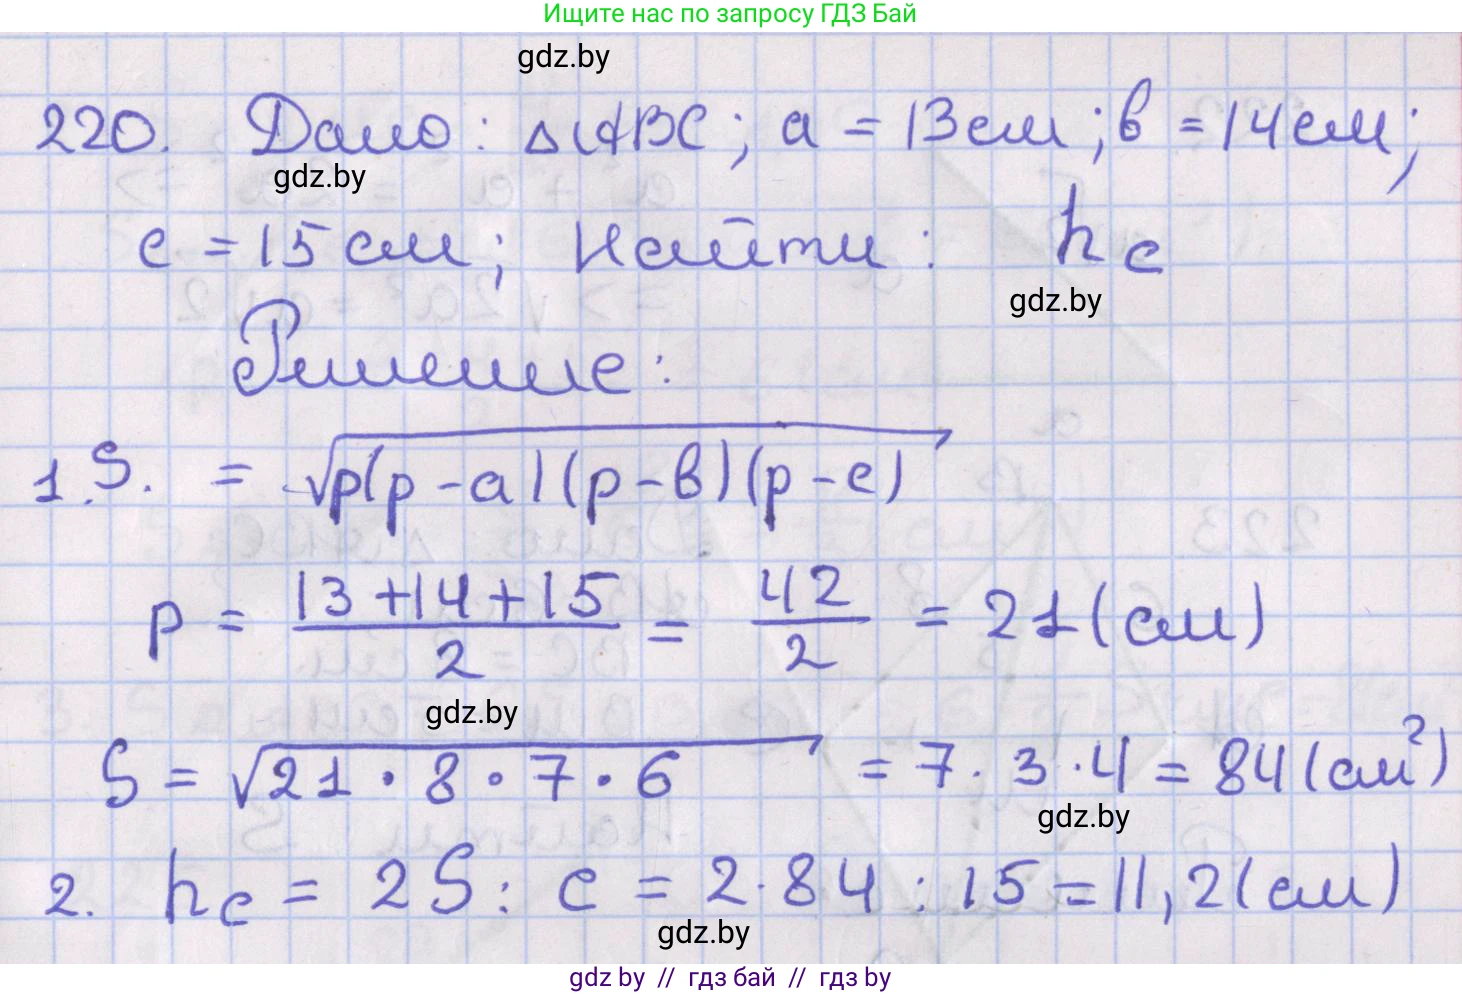 Ищите нас по запросу ГДЗ Бай
gdz.by
220. Дано: △ABC; a = 13см; в = 14см;
gdz.by
c = 15см; Найти: hc
gdz.by
Решение:
1. S. = √p(p-a)(p-в)(p-c)
p = 13+14+15/2 = 42/2 = 21(см)
gdz.by
S = √21·8·7·6 = 7·3·4 = 84(см²)
gdz.by
2. hc = 2S : c = 2·84 : 15 = 11,2(см)
gdz.by
gdz by // гдз бай // гдз by